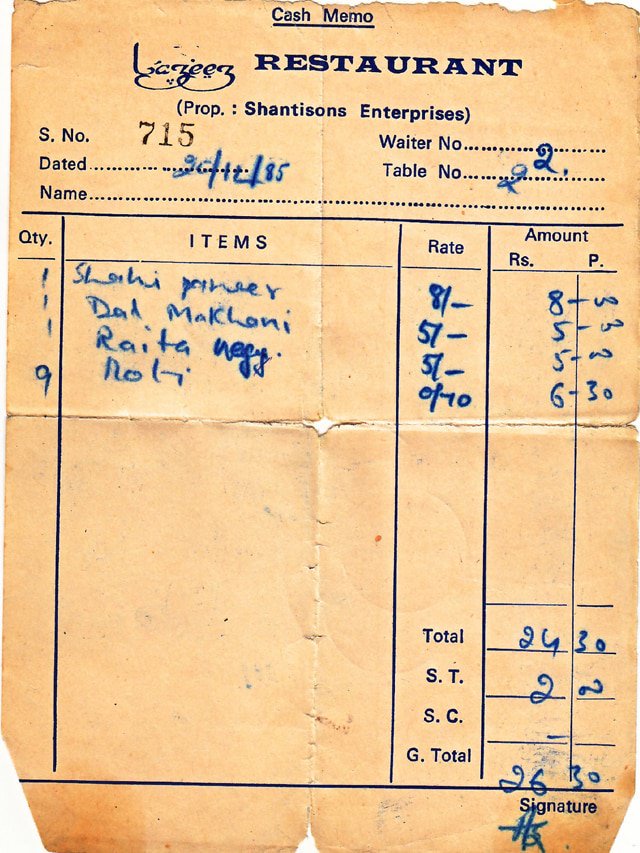 Cash Memo
Lazeez RESTAURANT
(Prop. : Shantisons Enterprises)
S. No. 715
Waiter No. 2.
Dated 20/12/85
Table No. 2
Name
Qty. ITEMS Rate Amount
Rs. P.
1 Shahi paneer 8/- 8-00
1 Dal Makhani 5/- 5-00
1 Raita vegy. 5/- 5-00
9 Roti 0/70 6-30
Total 24 30
S. T. 2 00
S. C. -
G. Total 26 30
Signature